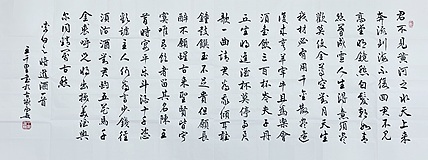 君不見黃河之水天上來
奔流到海不復回君不見
高堂明鏡悲白髮朝如青
絲暮成雪人生得意須盡
歡莫使金樽空對月天生
我材必有用千金散盡還
復來烹羊宰牛且為樂會
須一飲三百杯岑夫子丹
丘生將進酒杯莫停與君
歌一曲請君為我傾耳聽
鐘鼓饌玉不足貴但願長
醉不願醒古來聖賢皆寂
寞唯有飲者留其名陳王
昔時宴平樂斗酒十千恣
歡謔主人何為言少錢徑
須沽取對君酌五花馬千
金裘呼兒將出換美酒與
尔同銷萬古愁
李白之將進酒一首